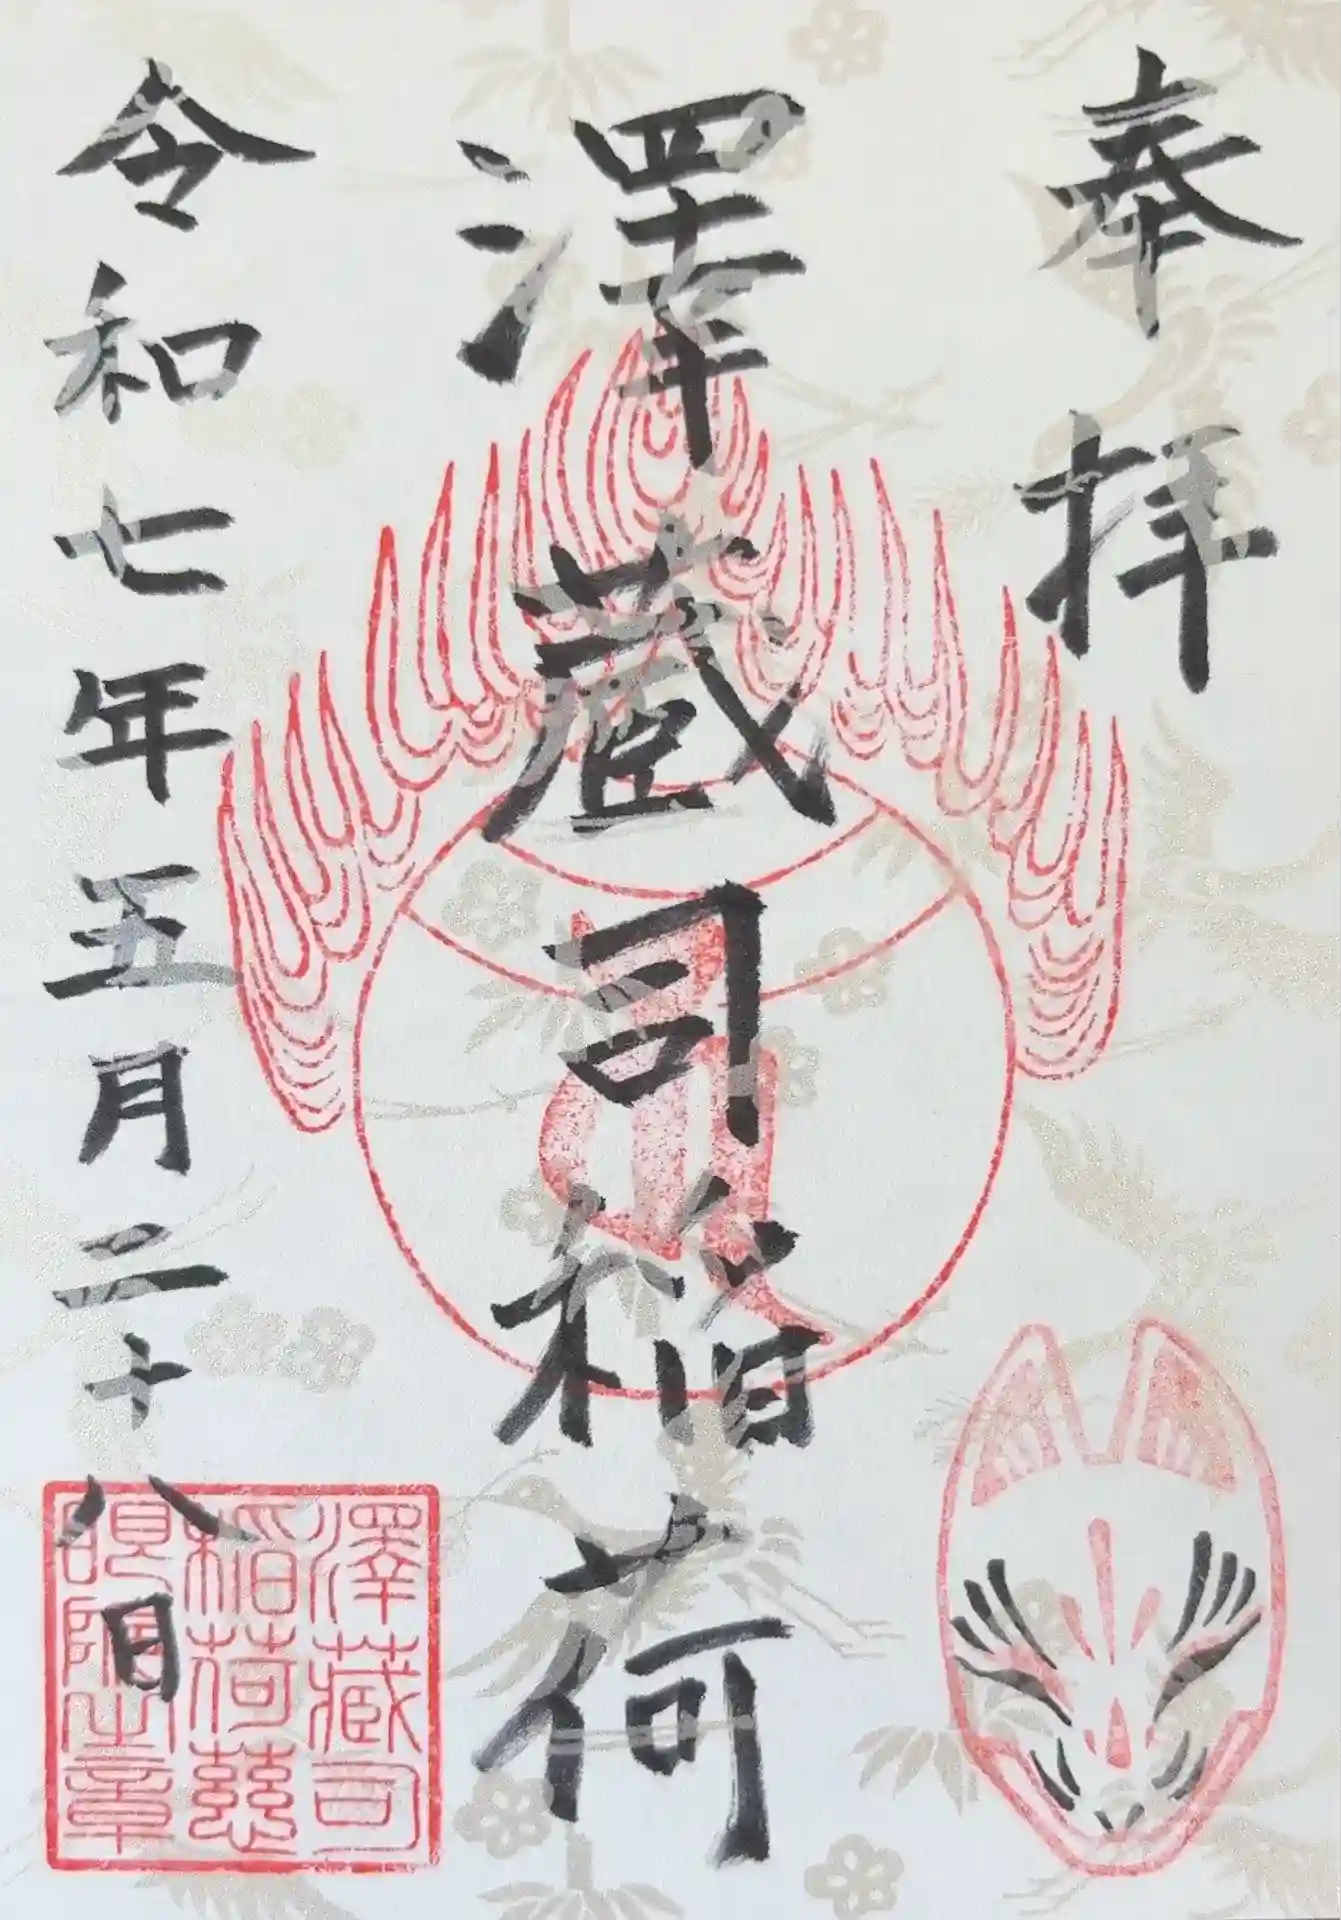 奉拝
澤蔵司稲荷
令和七年五月二十八日
澤蔵司
稲荷慈
眼院之章